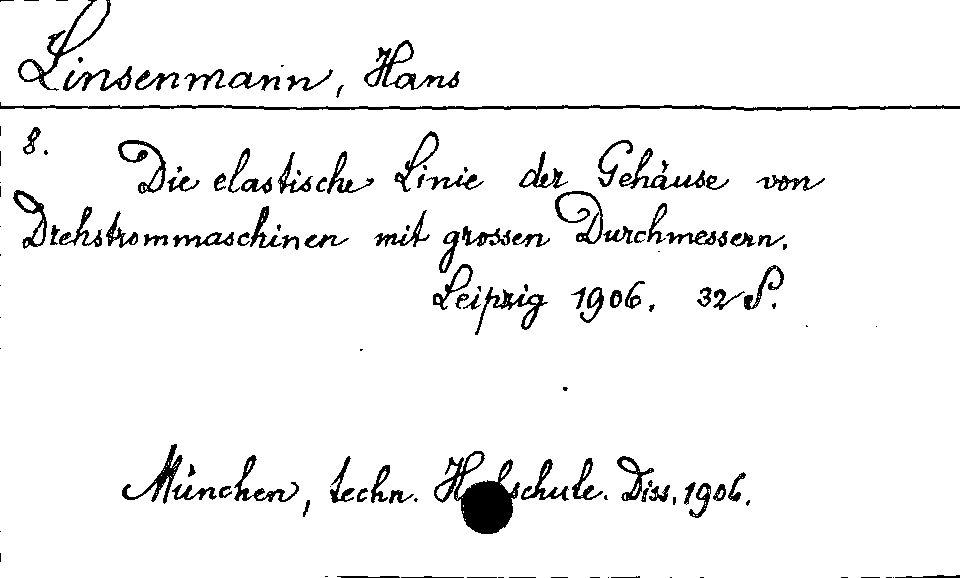 Linsenmann, Hans
8.
Die elastische Linie der Gehäuse von
Drehstrommaschinen mit grossen Durchmessern.
Leipzig 1906. 32 S.
München, techn. Hochschule. Diss. 1906.